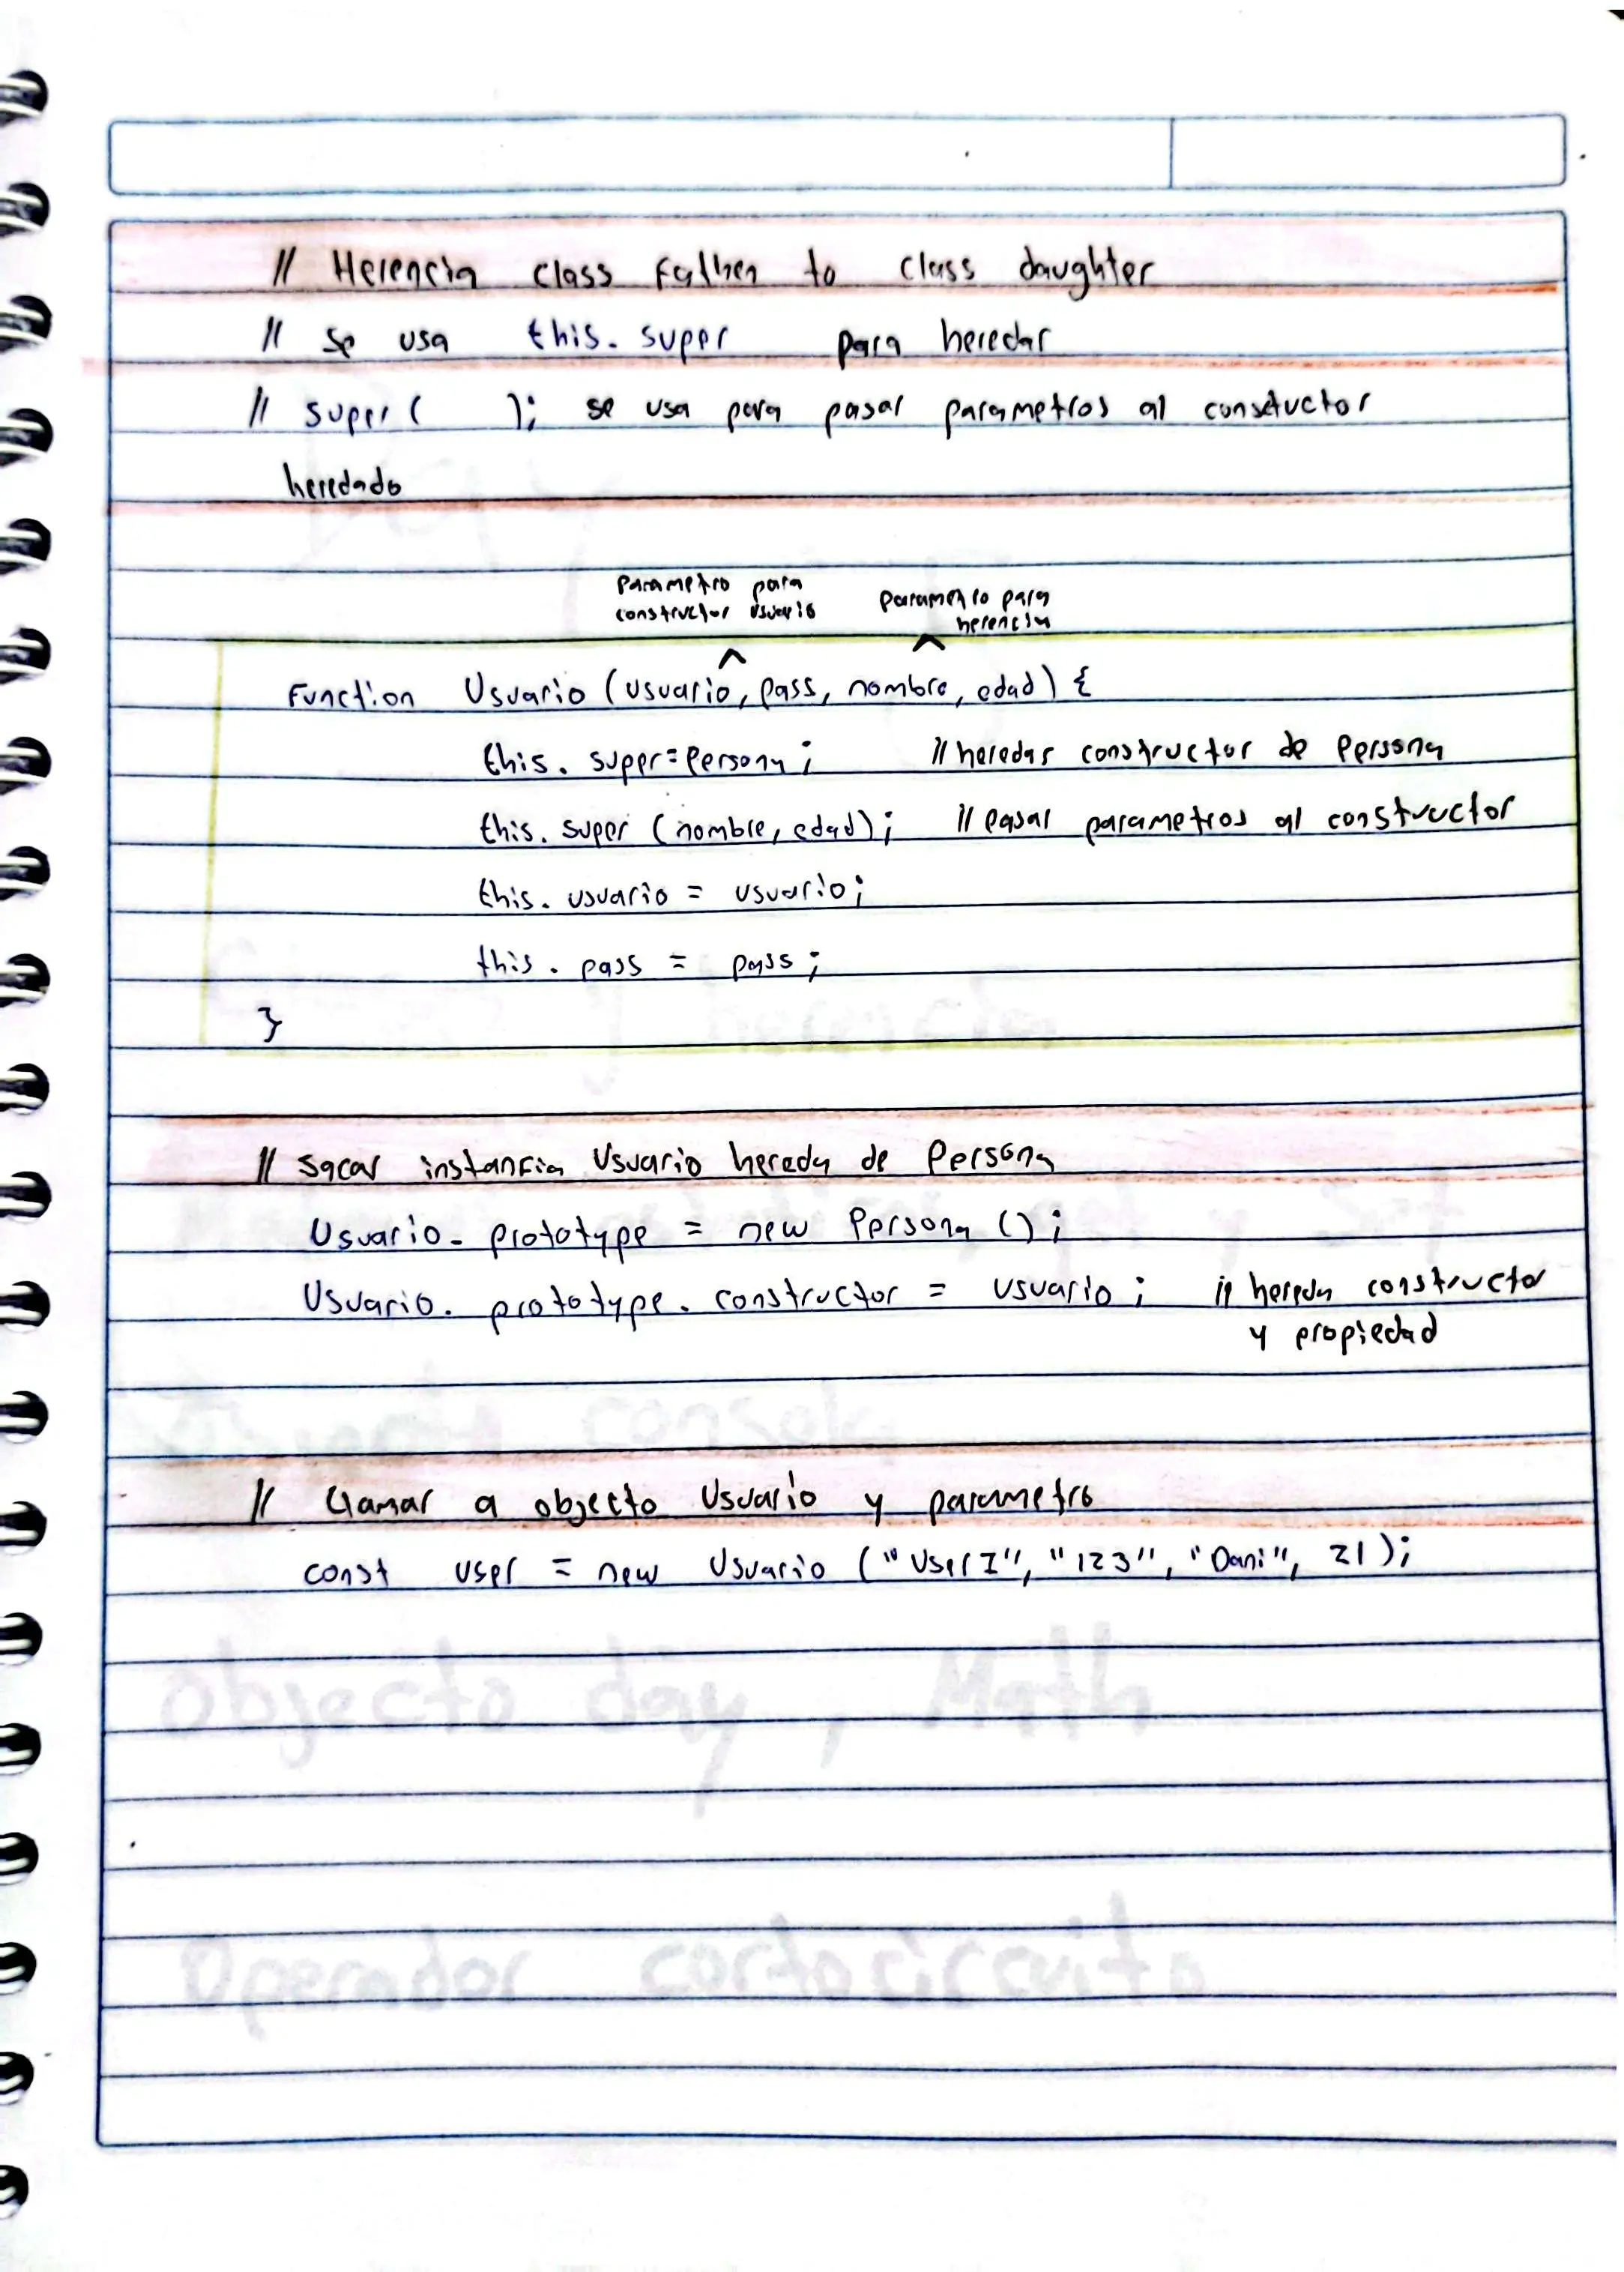 // Herencia class Father to class daughter
// se usa this. super para heredar
// super ( ); se usa para pasar parametros al constuctor
heredado
Parametro para
constructor usuario
parametro para
herencia
^ ^
Function Usuario (usuario, pass, nombre, edad) {
this. super=Persona; // heredar constructor de Persona
this. super (nombre, edad); // Pasar parametros al constructor
this. usuario = usuario;
this. pass = pass;
}
// sacar instancia Usuario hereda de Persona
Usuario. prototype = new Persona ();
Usuario. prototype. constructor = usuario; // hereda constructor
y propiedad
// Llamar a objecto Usuario y parametro
const user = new Usuario ("User1", "123", "Dani", 21);
Objecto day, Math
Operador cortocircuito